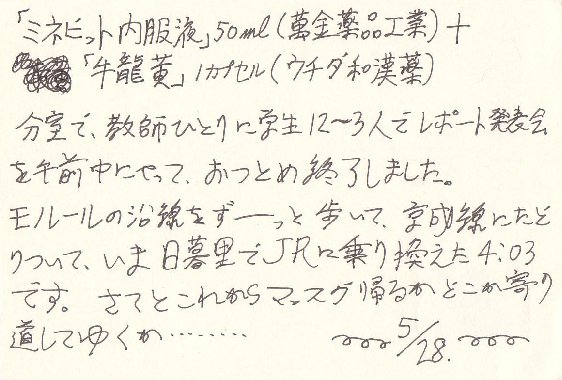 「ミネビット内服液」50ml(萬金薬品工業)+
「牛龍黄」1カプセル(ウチダ和漢薬)
分室で、教師ひとりに学生12〜3人でレポート発表会
を午前中にやって、おつとめ終了しました。
モノレールの沿線をず――っと歩いて、京成線にたど
りついて、いま日暮里でJRに乗り換えた4:03
です。さてとこれからマッスグ帰るかどこか寄り
道してゆくか………
5/28.